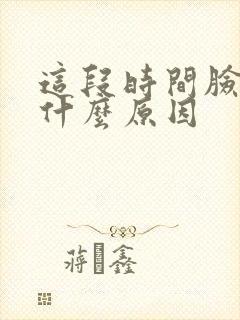 這段時間臉
什麼原因
蔣鑫